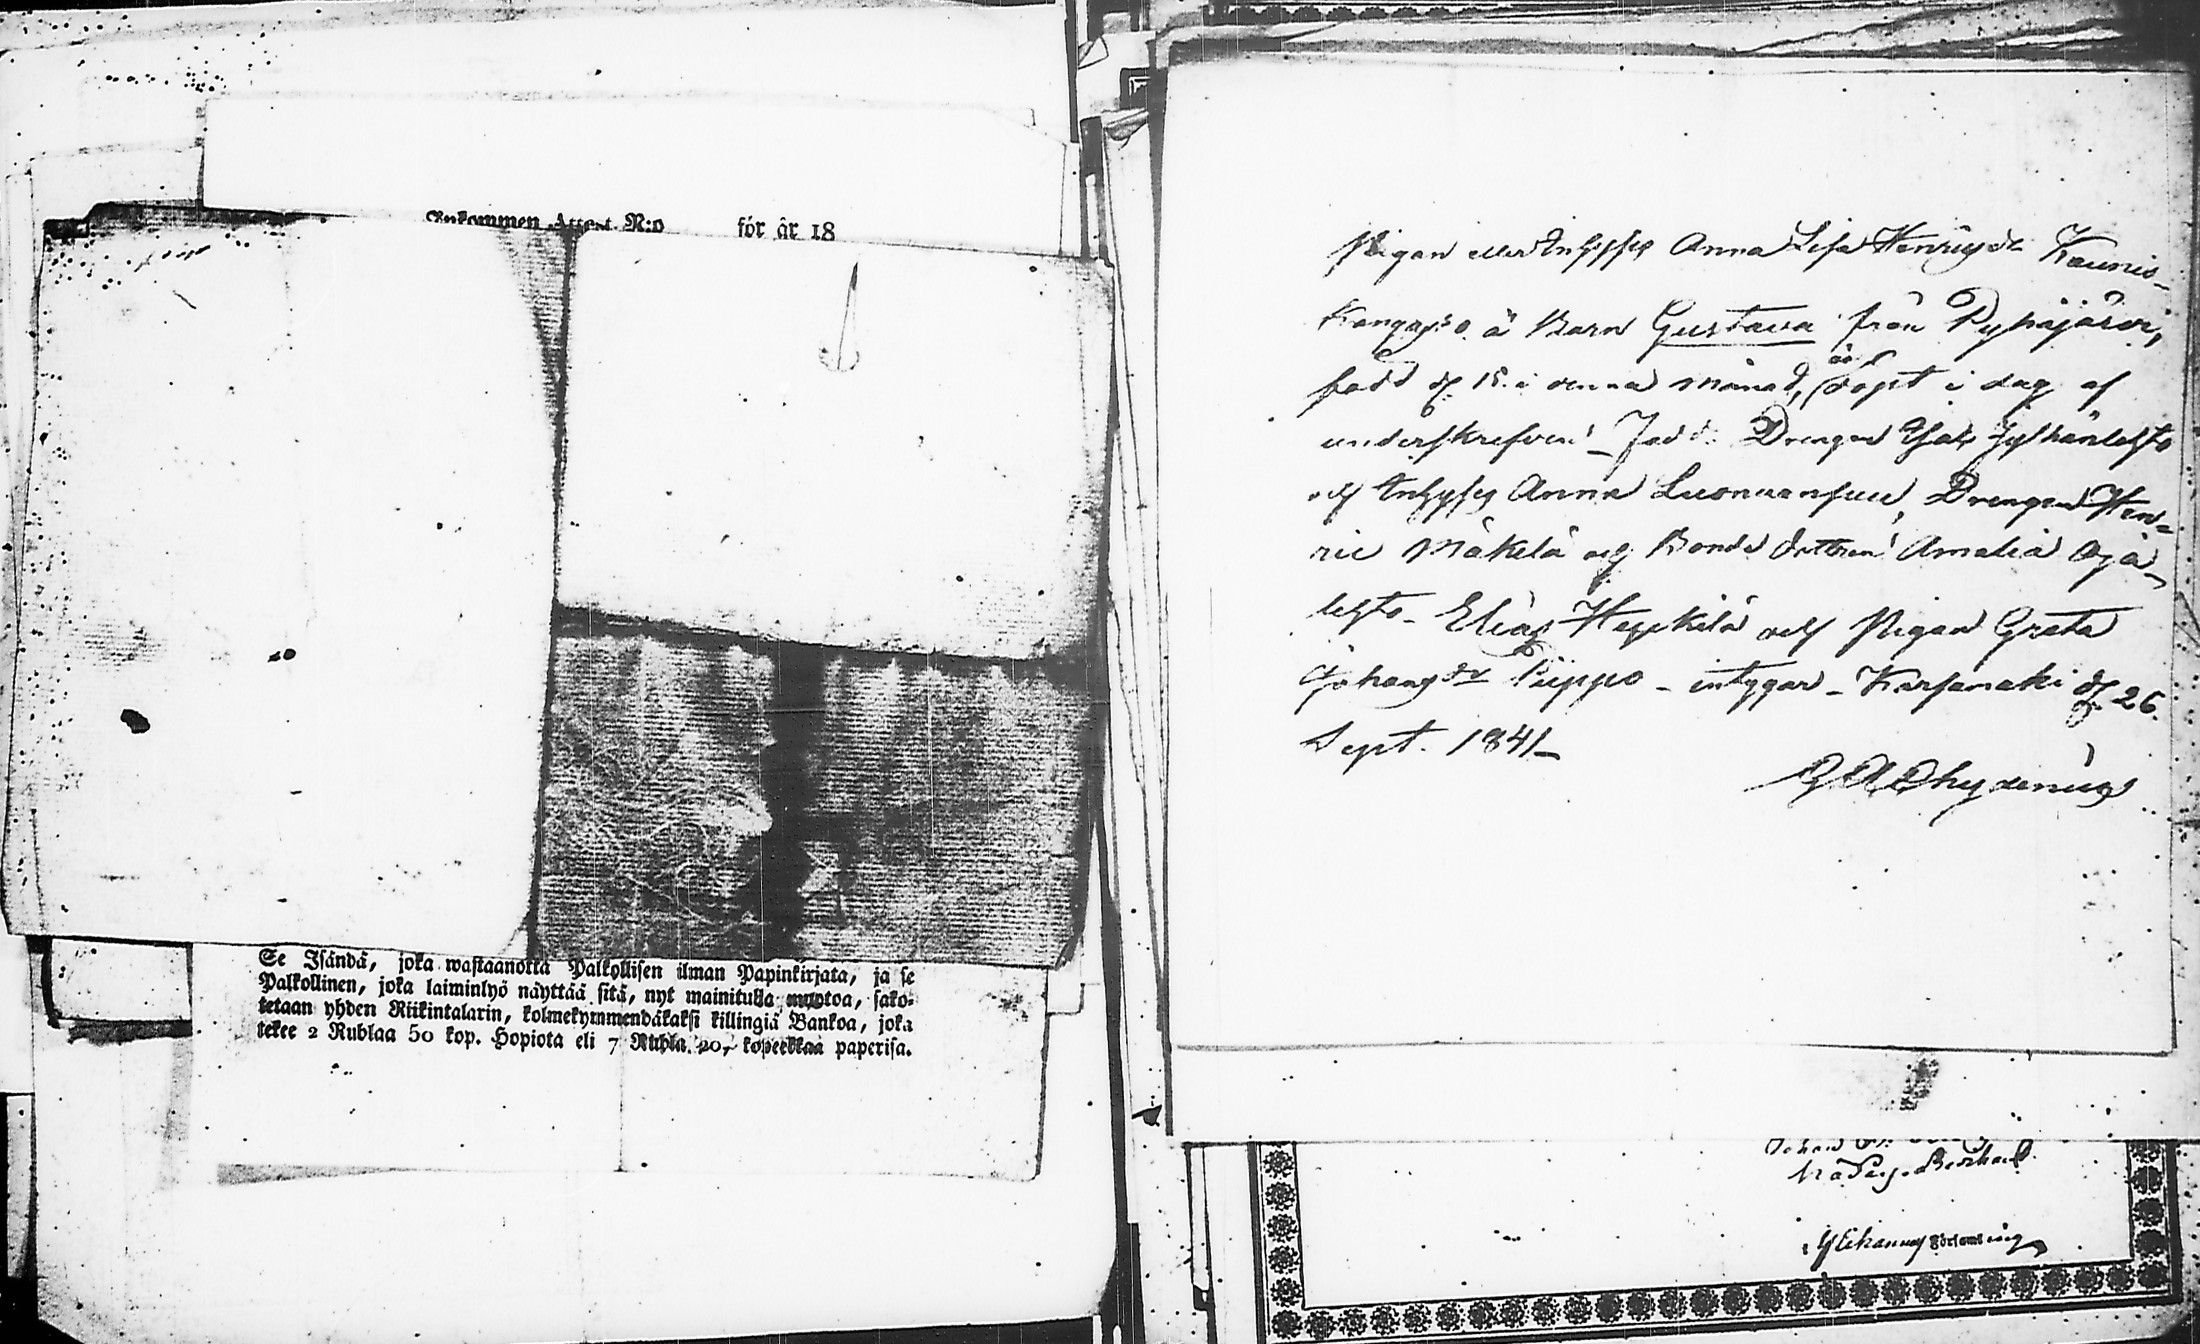 Inkommen Attest N:o för år 18
Se Isändä, joka wastaanotta Palkollisen ilman Papinkirjata, ja se
Palkollinen, joka laiminlyö näyttää sitä, nyt mainitulla muotoa, sako-
tetaan yhden Riikintalarin, kolmekymmendäkaksi killingiä Bankoa, joka
tekee 2 Rublaa 50 kop. Hopiota eli 7 Rubla. 20, kopeekkaa paperisa.
Pigan eller Inhyses Anna Lisa Henricsdr Kaunis-
Kangas o. ä Barn Gustava från Pyhäjärvi,
född d. 15. i denna månad, är döpt i dag af
underskrefven! Fadd: Drengen Isak Jylhänlehto
och Inhyses Anna Luonuansuu, Drengen Hen-
ric Mäkelä och Bonde dottren Amalia Oja-
lehto - Elias Heikilä och Pigan Greta
Johansdr Piippo - intygar - Kärsämäki d. 26.
Sept. 1841 -
Chydenius